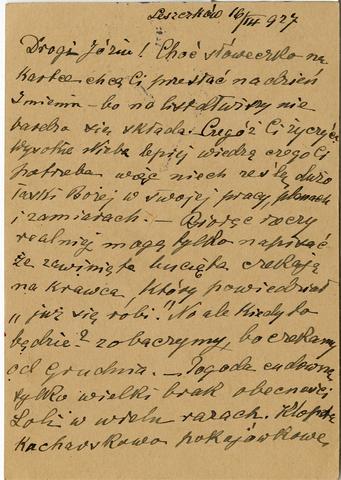 Leszczków 16/III 927
Drogi Józiu! Choć słóweczko na
Kartce chcą Ci przesłać na dzień
Imienin – bo na list dłuższy nie
bardzo się składa. Cegóż Ci życzyć?
Wysokie Nieba lepiej wiedzą czego Ci
potrzeba więc niech ześlą dużo
łaski Bożej w swojej pracy, planach
i zamiarach. – Biorąc rzeczy
realniej mogę tylko napisać
że zawinięte czekają
na Krawca, który powiedział
„już się robi"! No ale kiedy to
będzie? zobaczymy, bo czekamy
od grudnia. – Pogoda cudowna
tylko wielki brak obecności
Loli w wielu razach. Kłopoty
pokojówkowe,